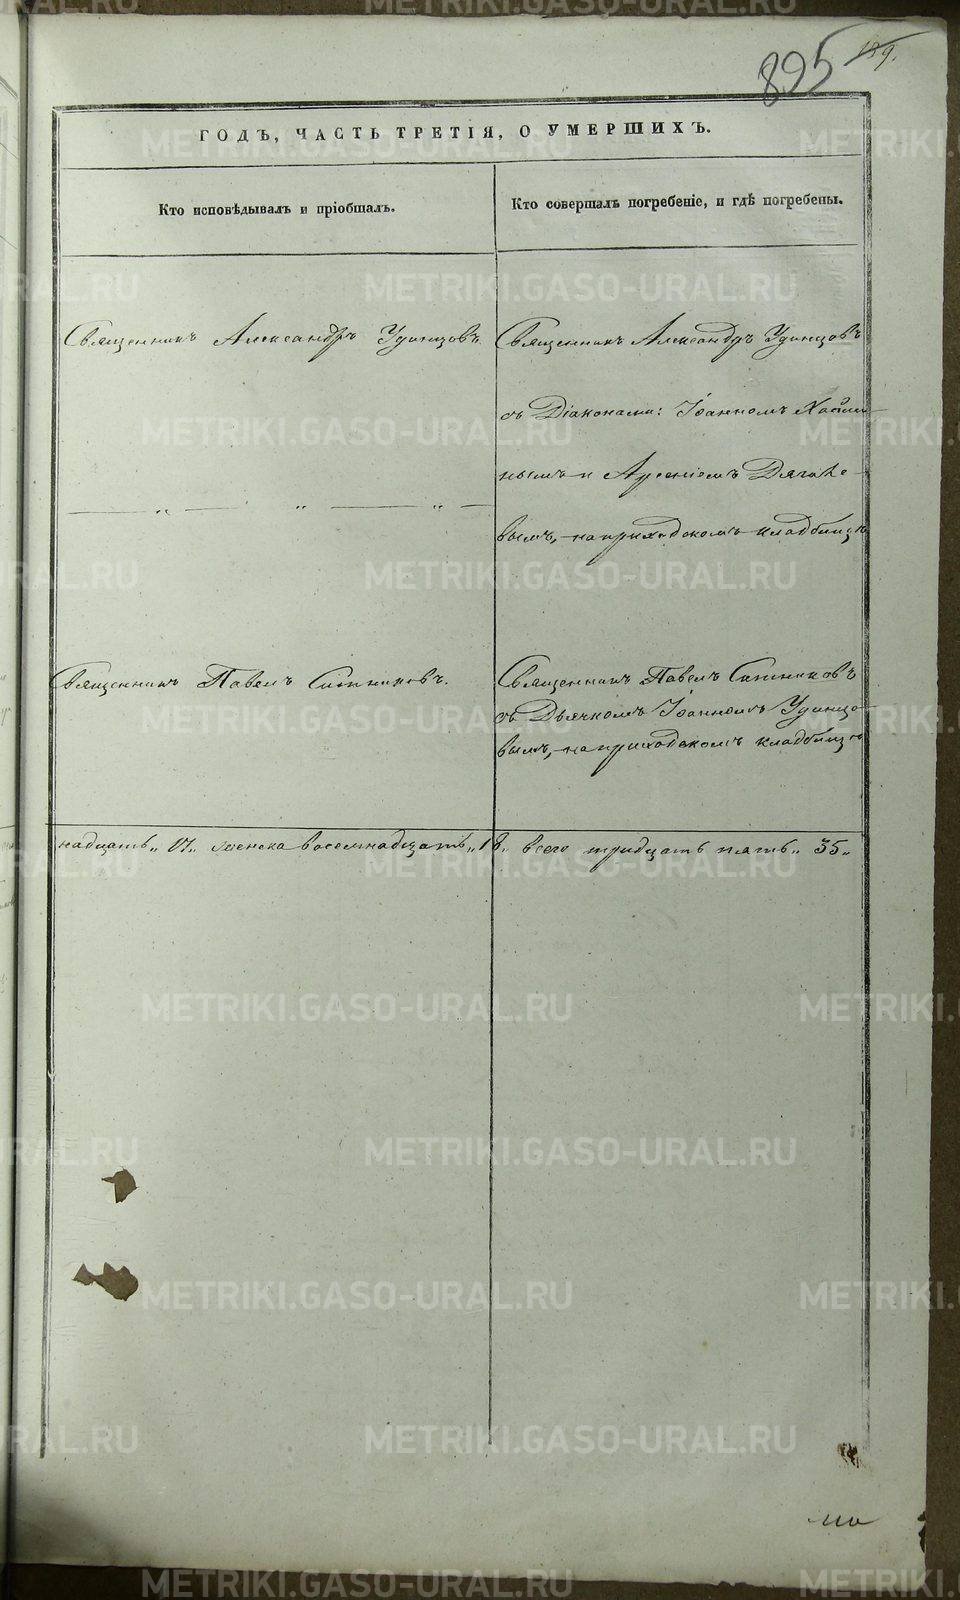 895 189.
ГОДЪ, ЧАСТЬ ТРЕТІЯ, О УМЕРШИХЪ.
Кто исповѣдывалъ и пріобщалъ.
Кто совершалъ погребеніе, и гдѣ погребены.
Священникъ Александръ Удинцовъ.
Священникъ Александръ Удинцовъ
съ Діаконами: Іоанномъ
нымъ и Арсеніемъ Дягиле-
вымъ, на приходскомъ кладбищѣ
Священникъ Павелъ Ситниковъ.
Священникъ Павелъ Ситниковъ
съ Дьячкомъ Іоанномъ Удинцо-
вымъ, на приходскомъ кладбищѣ
надцать „ 17 „ женска восемнадцать „ 18 „ всего тридцать пять „ 35 „
METRIKI.GASO-URAL.RU